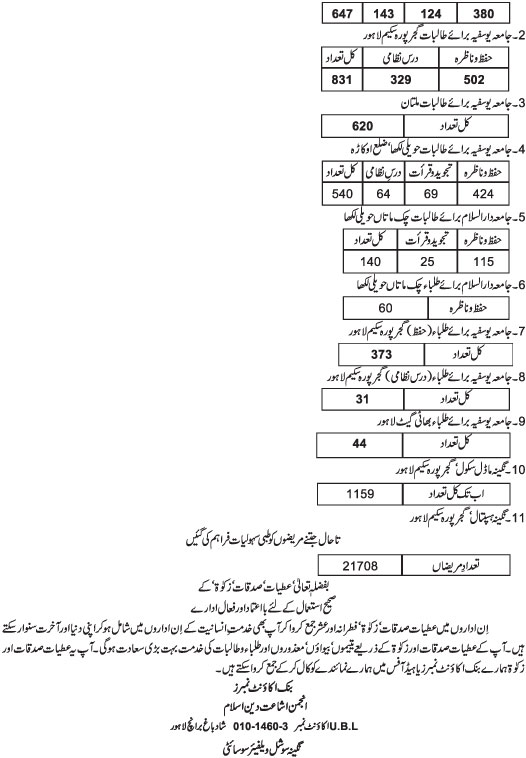 380 124 143 647
2۔جامعہ یوسفیہ برائے طالبات گجر پورہ سکیم لاہور
حفظ و ناظرہ درس نظامی کل تعداد
502 329 831
3۔جامعہ یوسفیہ برائے طالبات ملتان
کل تعداد 620
4۔جامعہ یوسفیہ برائے طالبات حویلی لکھا‘ ضلع اوکاڑہ
حفظ و ناظرہ تجوید و قرأت درس نظامی کل تعداد
424 69 64 540
5۔جامعہ دارالسلام برائے طالبات چک ماتاں حویلی لکھا
حفظ و ناظرہ تجوید و قرأت کل تعداد
115 25 140
6۔جامعہ دارالسلام برائے طلباء چک ماتاں حویلی لکھا
حفظ و ناظرہ 60
7۔جامعہ یوسفیہ برائے طلباء (حفظ) گجر پورہ سکیم لاہور
کل تعداد 373
8۔جامعہ یوسفیہ برائے طلباء (درس نظامی) گجر پورہ سکیم لاہور
کل تعداد 31
9۔جامعہ یوسفیہ برائے طلباء بھاٹی گیٹ لاہور
کل تعداد 44
10۔نگینہ ماڈل سکول‘ گجر پورہ سکیم لاہور
اب تک کل تعداد 1159
11۔نگینہ ہسپتال‘ گجر پورہ سکیم لاہور
تاحال جتنے مریضوں کو طبی سہولیات فراہم کی گئیں
تعداد مریضاں 21708
بفضلہ تعالیٰ‘ عطیات‘ صدقات‘ زکوٰۃ‘ کے
صحیح استعمال کے لئے بااعتماد اور فعال ادارے
اِن اداروں میں عطیات‘ صدقات‘ زکوٰۃ‘ فطرانہ اور عشر جمع کروا کر آپ بھی خدمتِ انسانیت کے اِن اداروں میں شامل ہو کر اپنی دنیا اور آخرت سنوار سکتے
ہیں۔ آپ کے عطیات‘ صدقات اور زکوٰۃ کے ذریعے یتیموں‘ بیواؤں‘ معذوروں اور طلباء و طالبات کی خدمت بہت بڑی سعادت ہو گی۔ آپ یہ عطیات‘ صدقات اور
زکوٰۃ ہمارے بنک اکاؤنٹ نمبرز یا ہیڈ آفس میں ہمارے نمائندے کو کال کر کے جمع کروا سکتے ہیں۔
بنک اکاؤنٹ نمبرز
انجمن اشاعت دین اسلام
U.B.L اکاؤنٹ نمبر 010-1460-3 شاد باغ برانچ لاہور
نگینہ سوشل ویلفیئر سوسائٹی